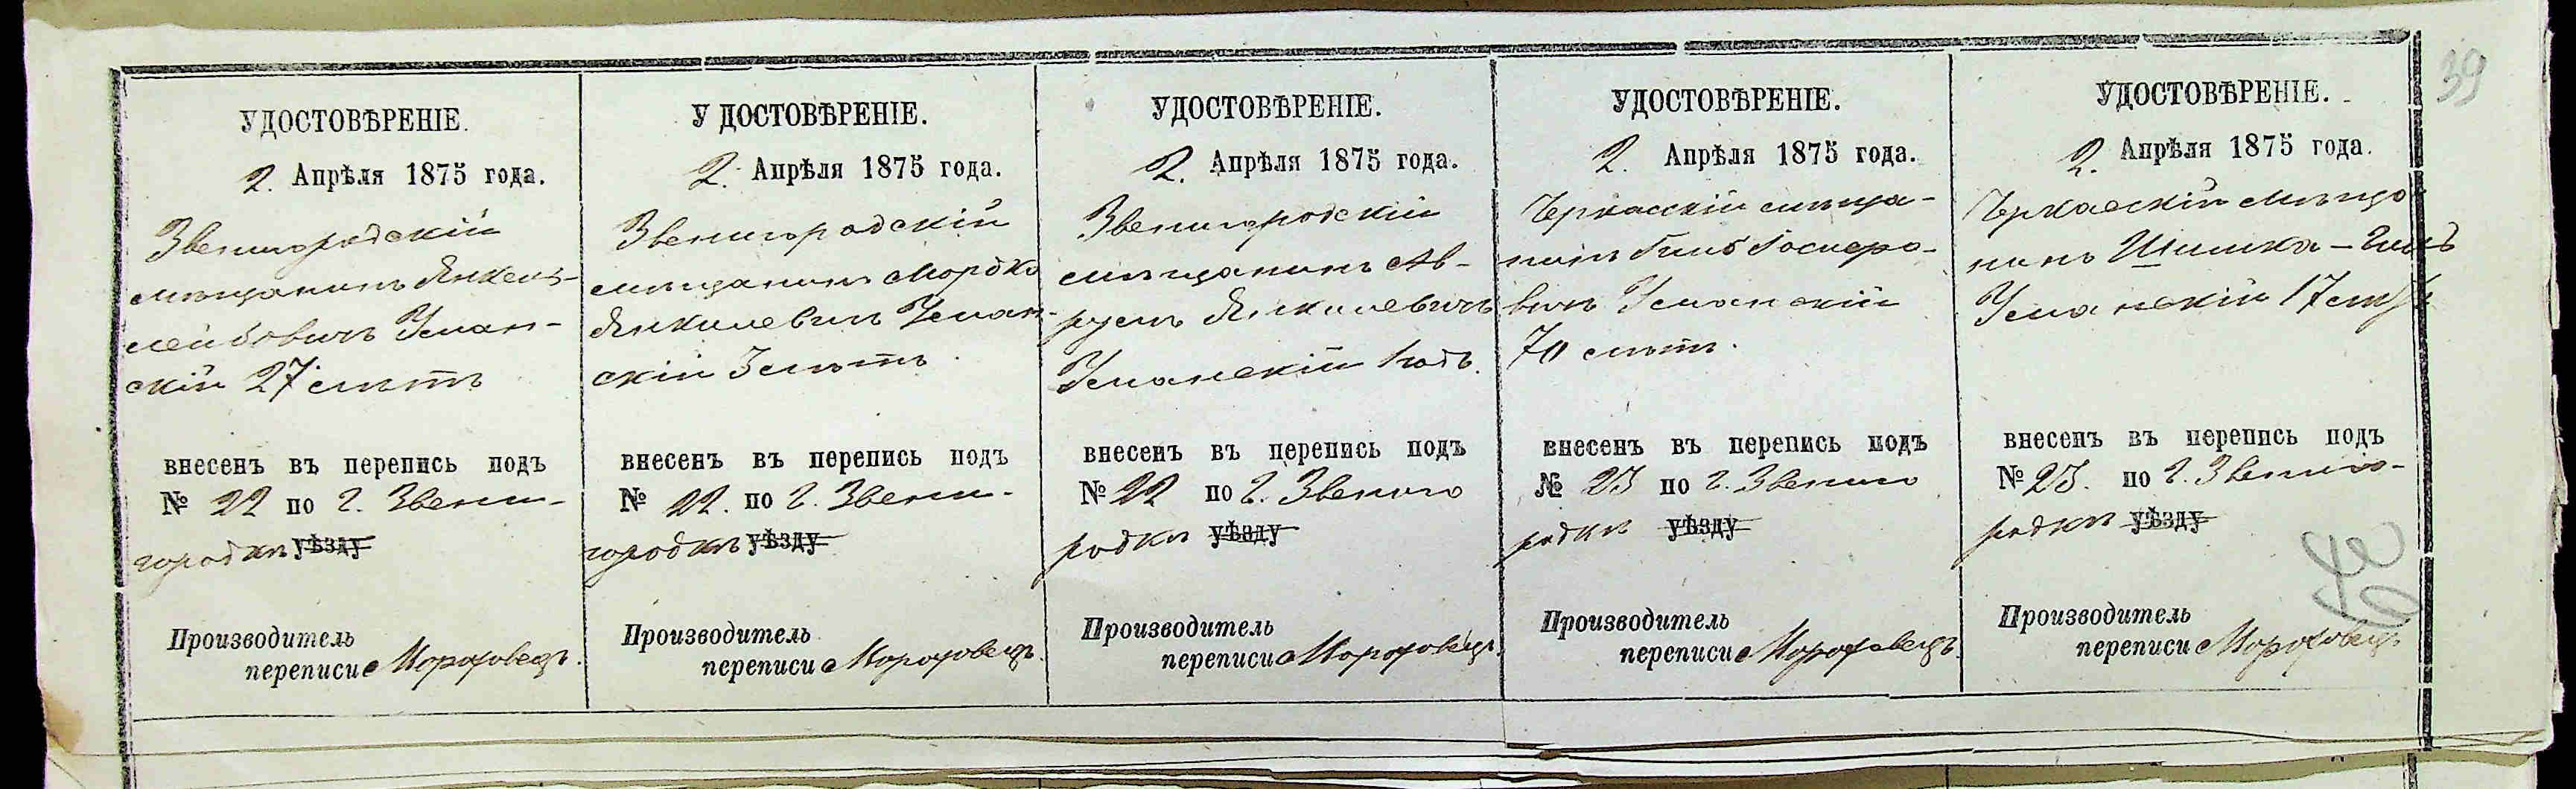 39
УДОСТОВѢРЕНІЕ.
2. Апрѣля 1875 года.
Звенигородскій
мѣщанинъ Янкель
Лейбовичъ Уман-
скій 27 лѣтъ
внесенъ въ перепись подъ
№ 22 по г. Звени-
городкѣ уѣзду
Производитель
переписи Мороховецъ.
У ДОСТОВѢРЕНІЕ.
2. Апрѣля 1875 года.
Звенигородскій
мѣщанинъ Мордко
Янкилевичъ Уман-
скій 3 лѣтъ.
внесенъ въ перепись подъ
№ 22. по г. Звени-
городкѣ уѣзду
Производитель
переписи Мороховецъ.
УДОСТОВѢРЕНІЕ.
2. Апрѣля 1875 года.
Звенигородскій
мѣщанинъ Ав-
румъ Янкилевичъ
Уманскій 1 годъ.
внесенъ въ перепись подъ
№ 22 по г. Звениго
родкѣ уѣзду
Производитель
переписи Мороховецъ.
УДОСТОВѢРЕНІЕ.
2. Апрѣля 1875 года.
Черкасскій мѣща-
нинъ
вичъ Уманскій
70 лѣтъ.
внесенъ въ перепись подъ
№ 23 по г. Звениго
родкѣ уѣзду
Производитель
переписи Мороховецъ.
УДОСТОВѢРЕНІЕ.
2. Апрѣля 1875 года.
Черкаскій мѣща
нинъ Шлимка
Уманскій 17 лѣтъ
внесенъ въ перепись подъ
№ 23. по г. Звениго-
родкѣ уѣзду
Производитель
переписи Мороховецъ